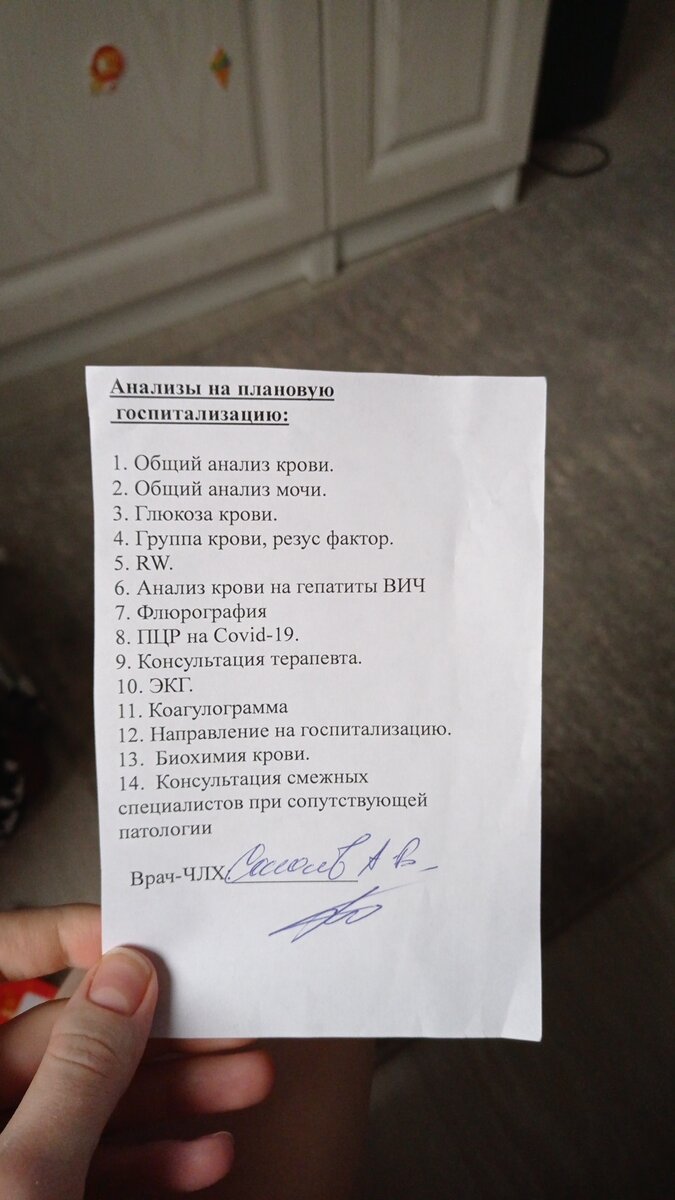 Анализы на плановую
госпитализацию:
1. Общий анализ крови.
2. Общий анализ мочи.
3. Глюкоза крови.
4. Группа крови, резус фактор.
5. RW.
6. Анализ крови на гепатиты ВИЧ
7. Флюрография
8. ПЦР на Covid-19.
9. Консультация терапевта.
10. ЭКГ.
11. Коагулограмма
12. Направление на госпитализацию.
13. Биохимия крови.
14. Консультация смежных
специалистов при сопутствующей
патологии
Врач-ЧЛХ. А В